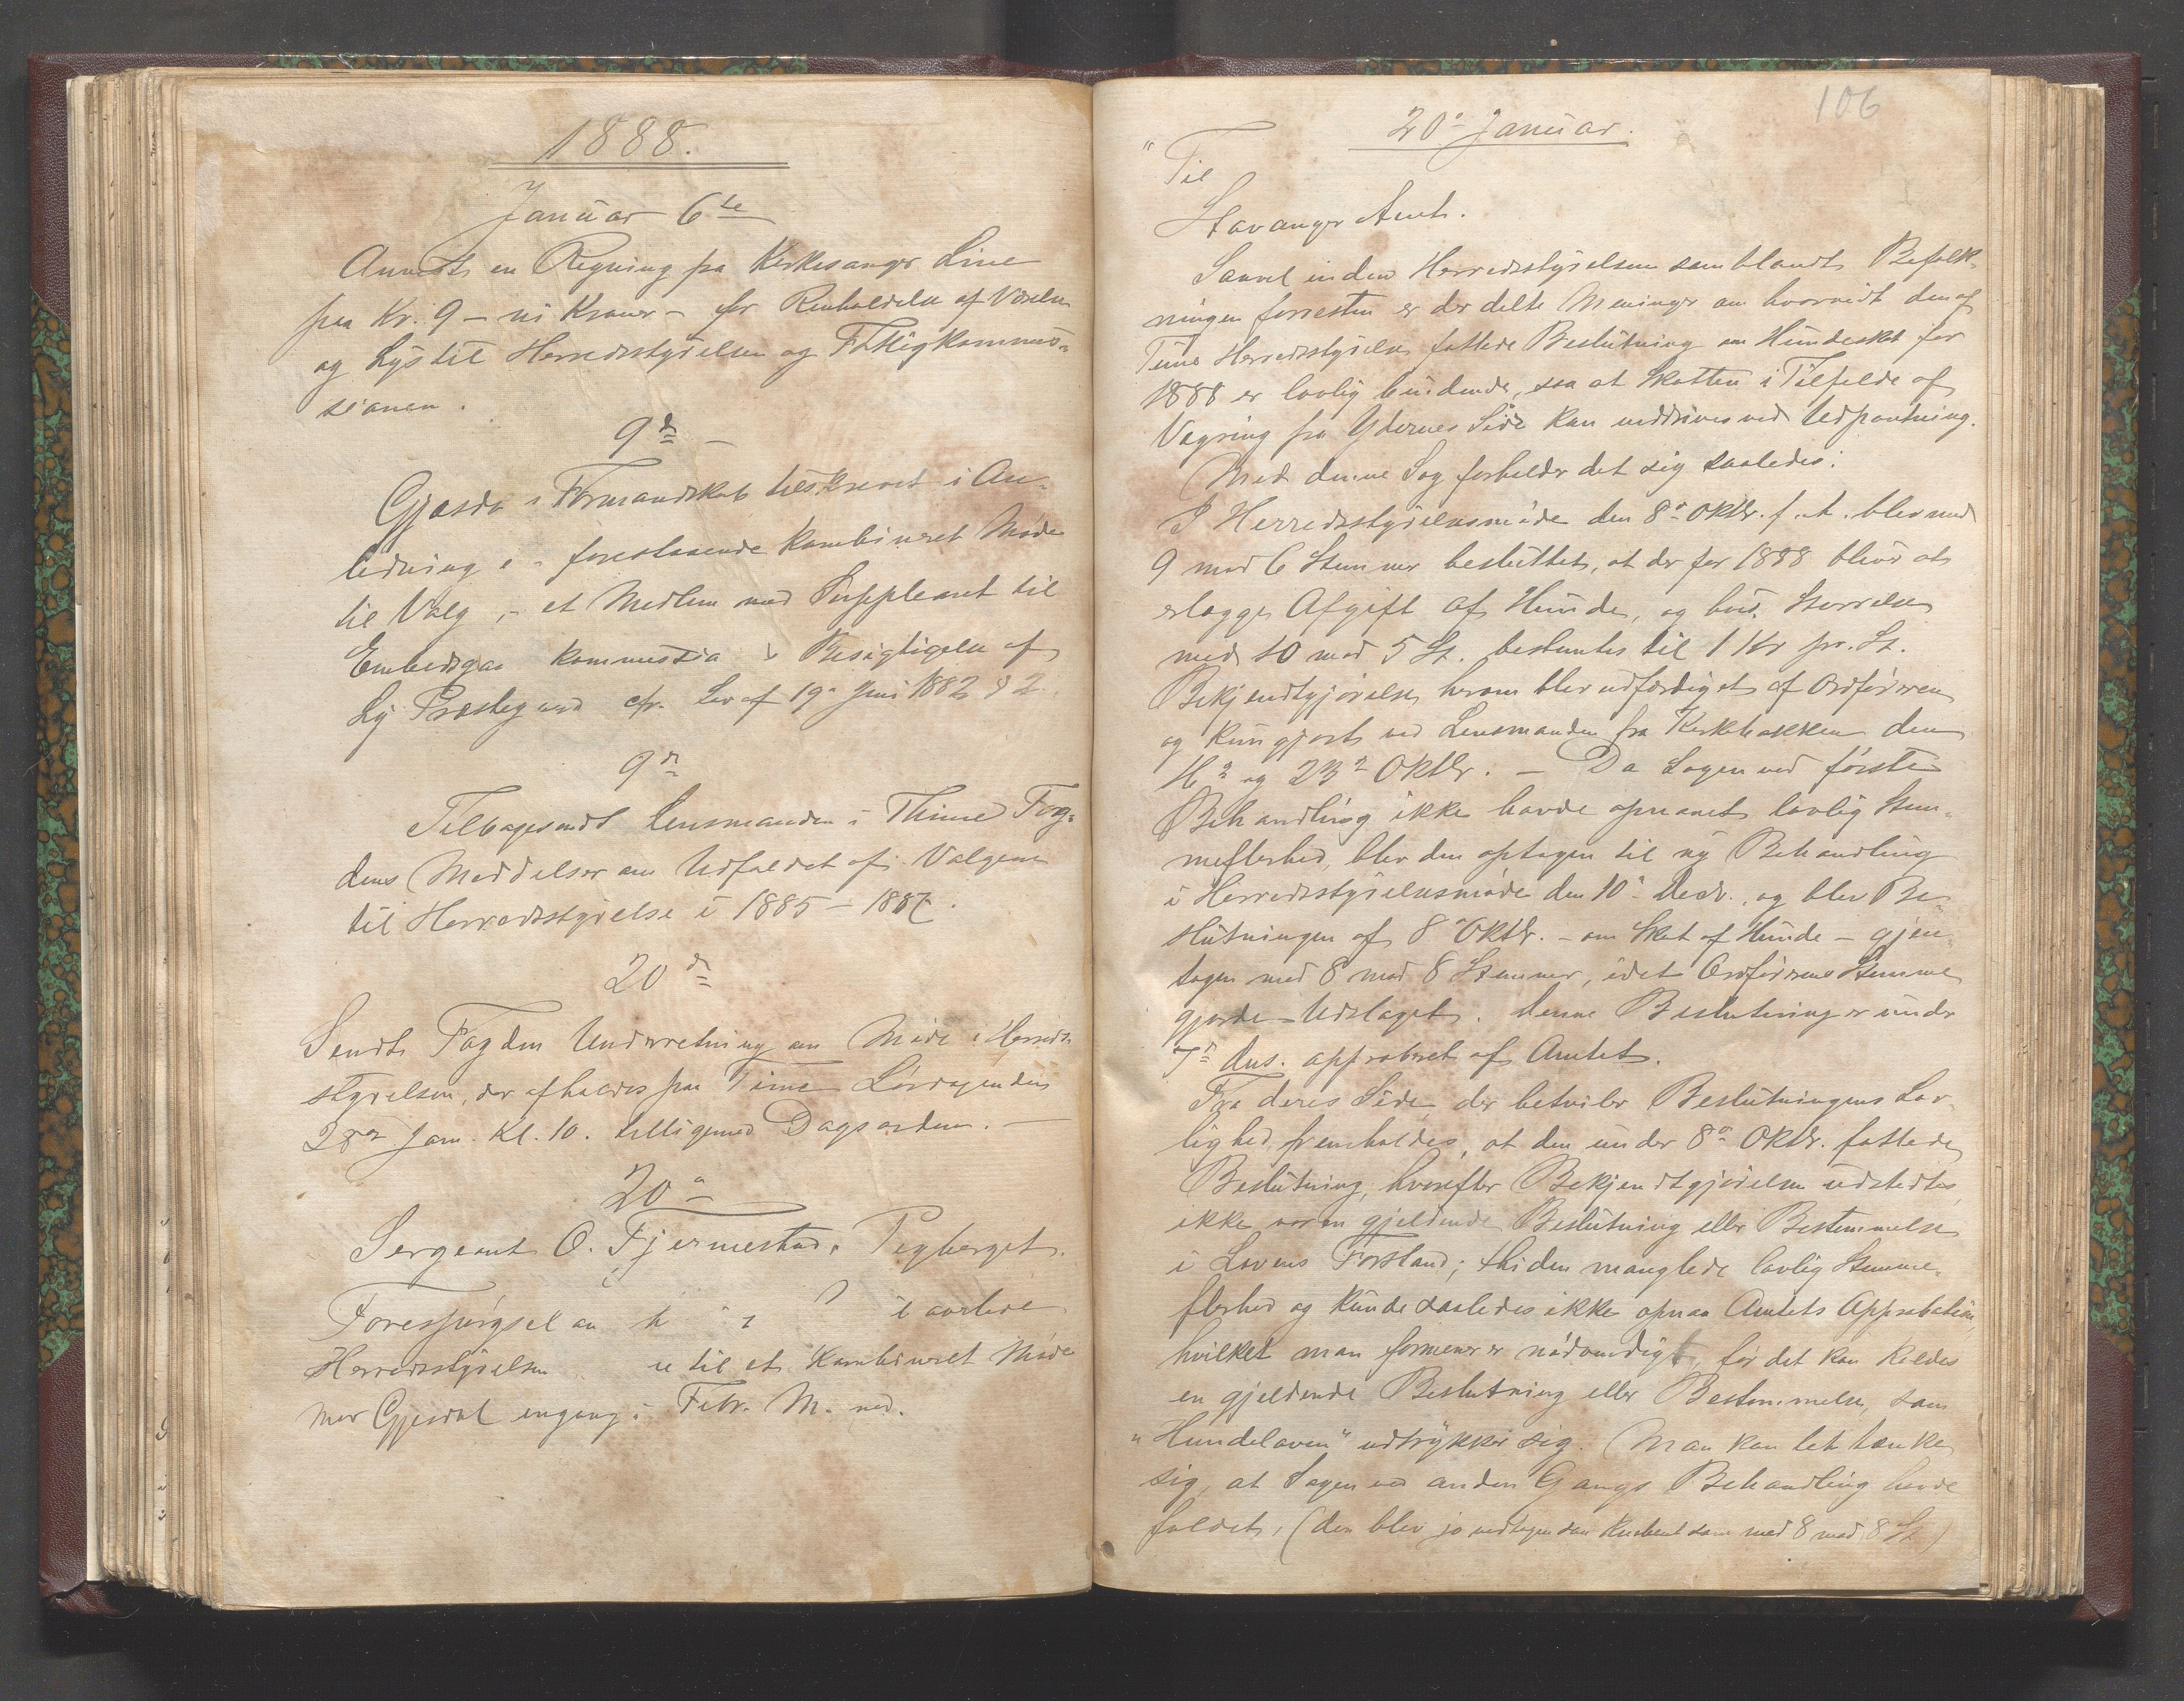 1888.
Januar 6te
Anvist en Regning fra Kirkesanger Line
paa Kr. 9 – ni Kroner – for Renholdelse af Værelse
og Lys til Herredsstyrelsen og Fattigkommis-
sionen.
9de
Gjesdal Formandskab tilskrevet i An-
ledning forestaaende kombineret Møde
til Valg et Medlem med Suppleant til
Embedsgaards kommission Besigtigelse af
Ly Prestegaard cfr. Lov af 19de Juni 1882 § 2.
9de
Tilbagesendt Lensmanden i Thime Fog-
dens Meddelser om Udfaldet af Valgene
til Herredsstyrelse i 1885 – 1887.
20de
Sendt Fogden Underretning om Møde i Herreds-
styrelsen, der afholdes paa Time Lørdagen den
28de Jan. Kl. 10. tilligemed Dagsorden. –
20de
Sergeant O. Fjermestad,
Forespørgsel om
Herredsstyrelsen til et kombineret Møde
med Gjesdal engang i Febr. M.
106
20de Januar.
" Til
Stavanger Amt.
Saavel inden Herredsstyrelsen som blandt Befolk-
ningen forresten er der delte Meninger om hvorvidt den af
Time Herredsstyrelse fattede Beslutning om Hundeskat for
1888 er lovlig bindende, saa at Skatten i Tilfelde af
Vegring fra Ydernes Side kan inddrives ved Udpantning.
Med denne Sag forholder det sig saaledes:
I Herredsstyrelsesmøde den 8de Oktbr. f. A. blev med
9 mod 6 Stemmer besluttet, at der for 1888 bliver at
erlægge Afgift af Hunde, og blev Størrelsen
med 10 mod 5 St. bestemtes til 1 Kr pr. St.
Bekjendtgjørelse herom blev udfærdiget af Ordføreren
og kungjort ved Lensmanden fra Kirkebakken den
16de og 23de Oktbr. – Da Sagen ved første
Behandling ikke havde opnaaet lovlig Stem-
meflerhed, blev den optagen til ny Behandling
i Herredsstyrelsesmøde den 10de Decbr., og blev Be-
slutningen af 8de Oktbr. – om Skat af Hunde – gjen-
tagen med 8 mod 8 Stemmer, idet Ordførerens Stemme
gjorde Udslaget. Denne Beslutning er under
7de ds. approberet af Amtet.
Fra deres Side, der betviler Beslutningens Lov-
lighed, fremholdes, at den under 8de Oktbr. fattede
Beslutning, hvorefter Bekjendtgjørelsen udstedtes,
ikke var en gjeldende Beslutning eller Bestemmelse
i Lovens Forstand; thi den manglede lovlig Stemme-
flerhed og kunde saaledes ikke opnaa Amtets Approbation,
hvilket man formener er nødvendigt, før det kan kaldes
en gjeldende Beslutning eller Bestemmelse, som
"Hundeloven" udtrykker sig. Man kan let tænke
sig, at Sagen ved anden Gangs Behandling havde
faldet, (den blev jo vedtagen saa knebent som med 8 mod 8 St.)